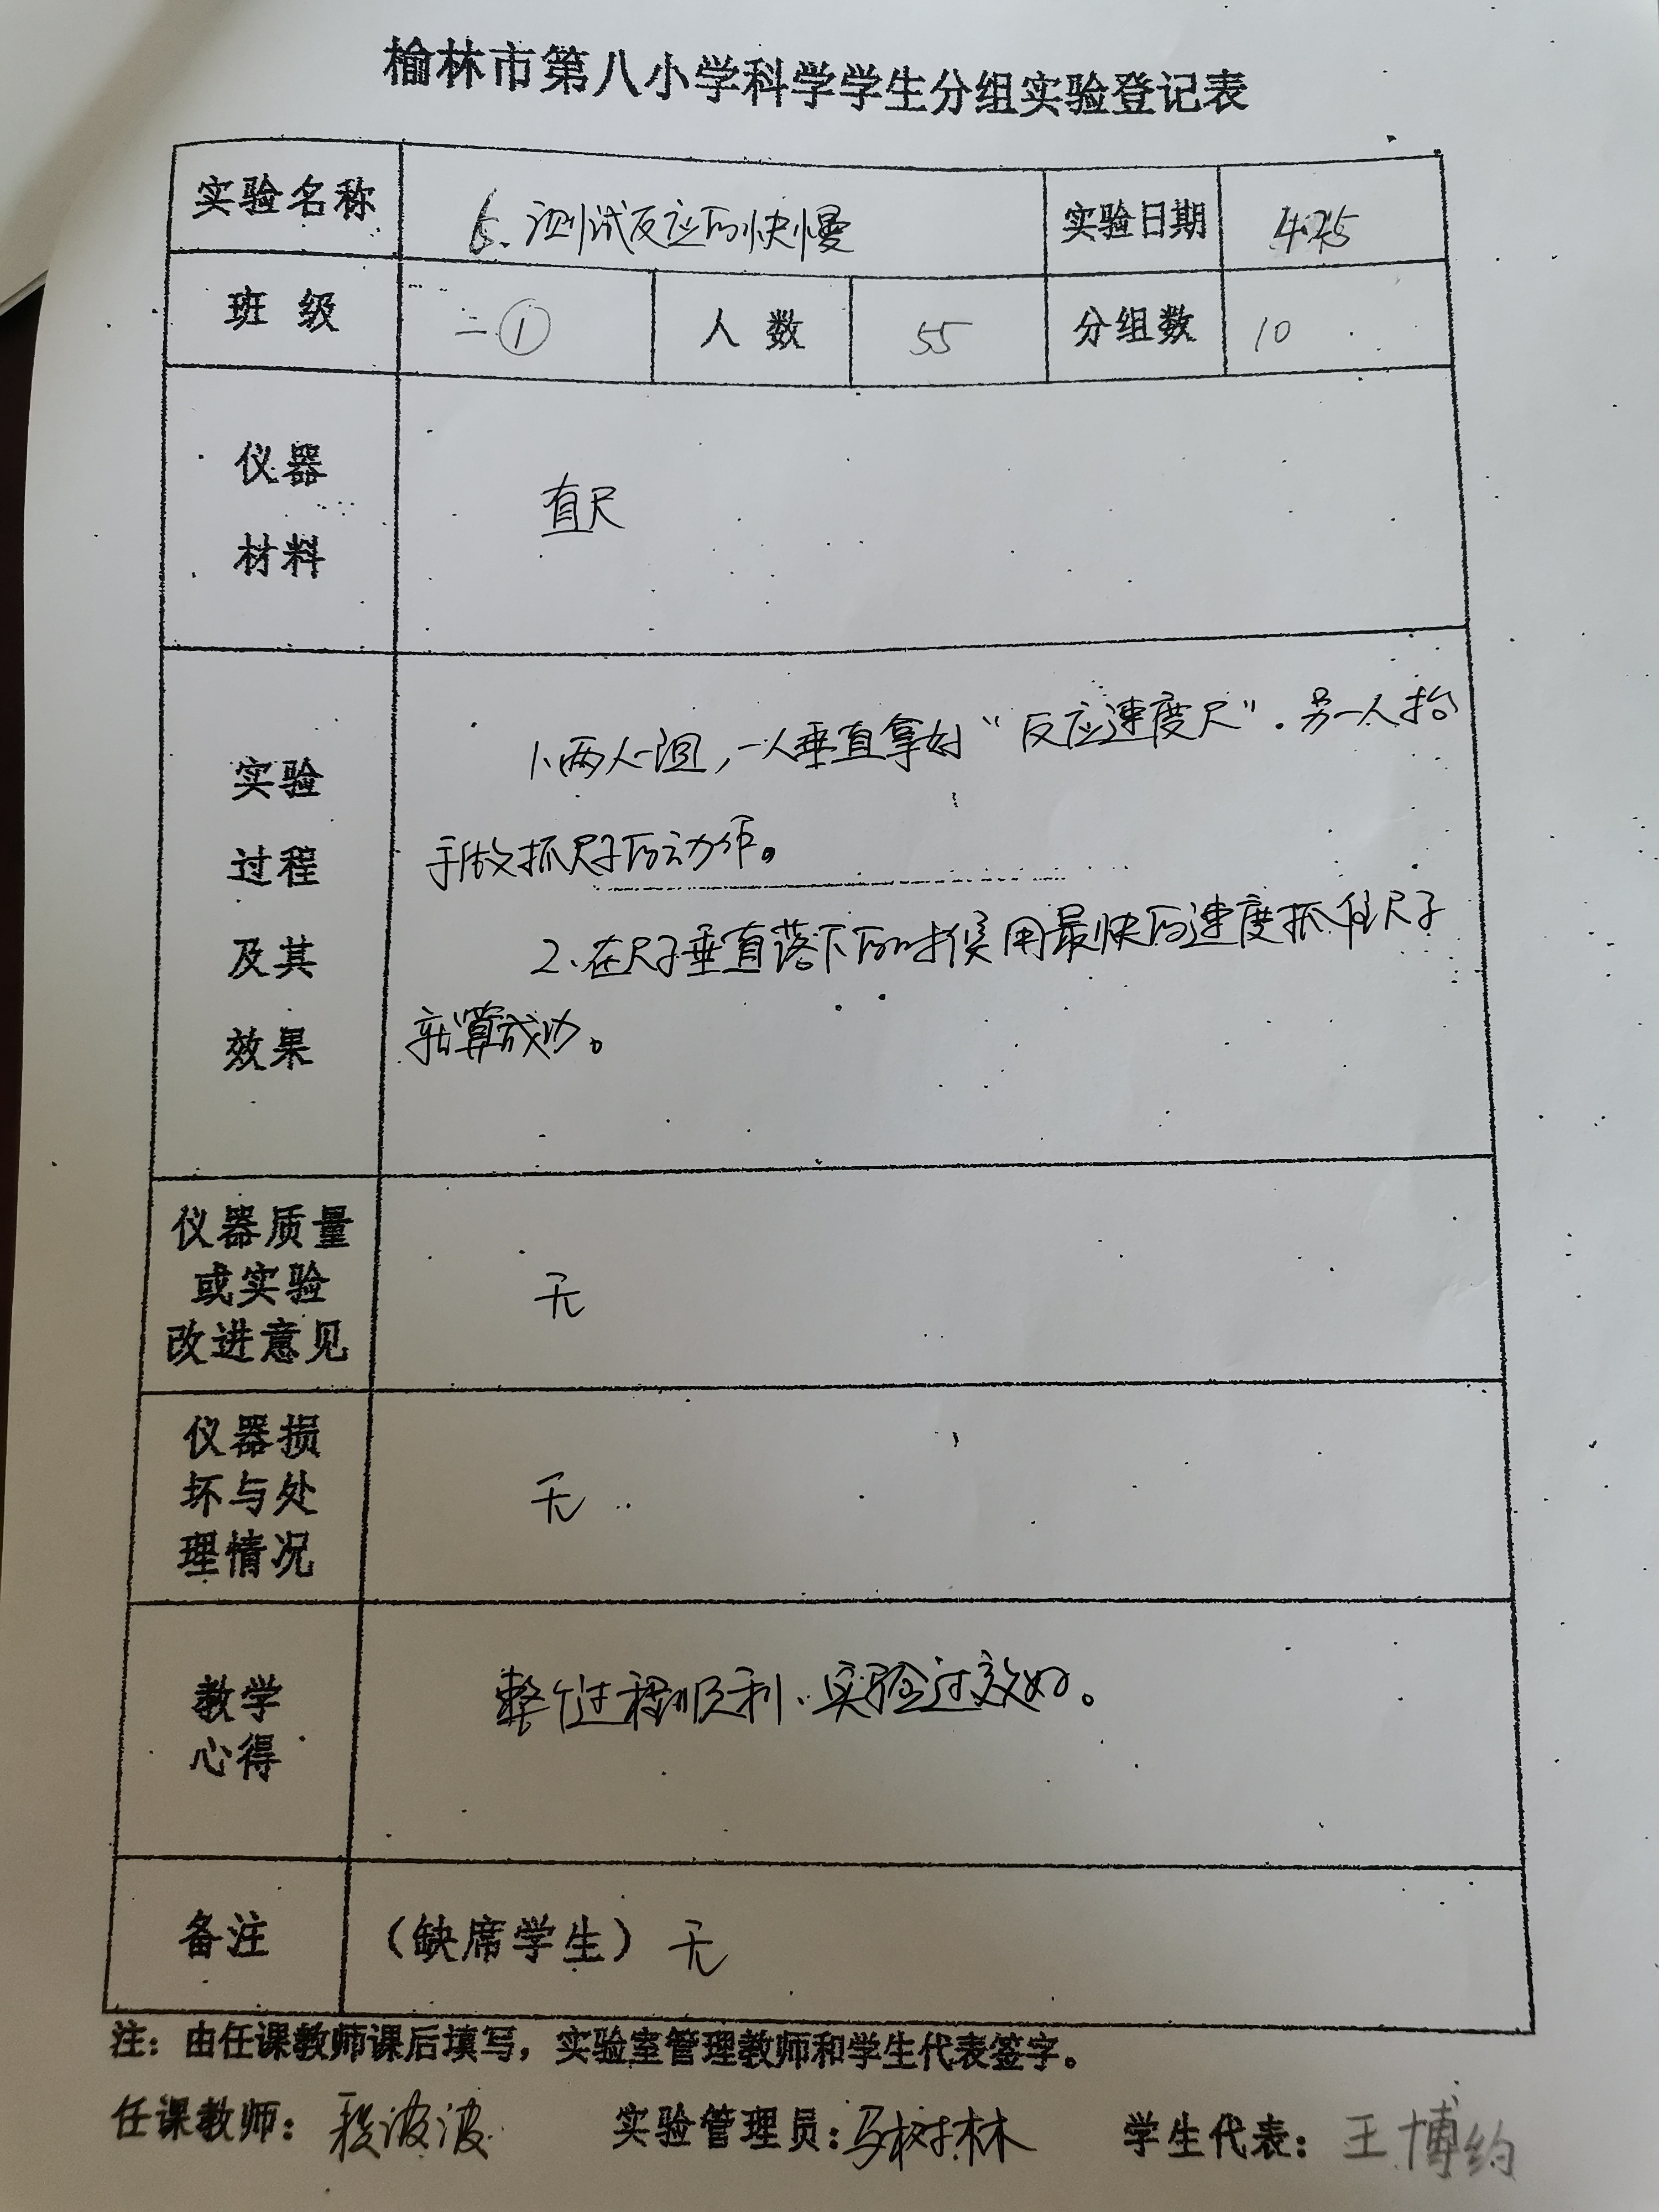 榆林市第八小学科学学生分组实验登记表
实验名称 6. 测试反应的快慢 实验日期 4.25
班 级 二① 人 数 55 分组数 10
仪器
材料
直尺
实验
过程
及其
效果
1、两人一组，一人垂直拿好“反应速度尺”. 另一人抬
手做抓尺子的动作。
2、在尺子垂直落下的时候用最快的速度抓住尺子
就算成功。
仪器质量
或实验
改进意见
无
仪器损
坏与处
理情况
无
教学
心得
整个过程顺利、实验过效好。
备注 （缺席学生）无
注：由任课教师课后填写，实验室管理教师和学生代表签字。
任课教师： 波波 实验管理员：马树林 学生代表：王博约